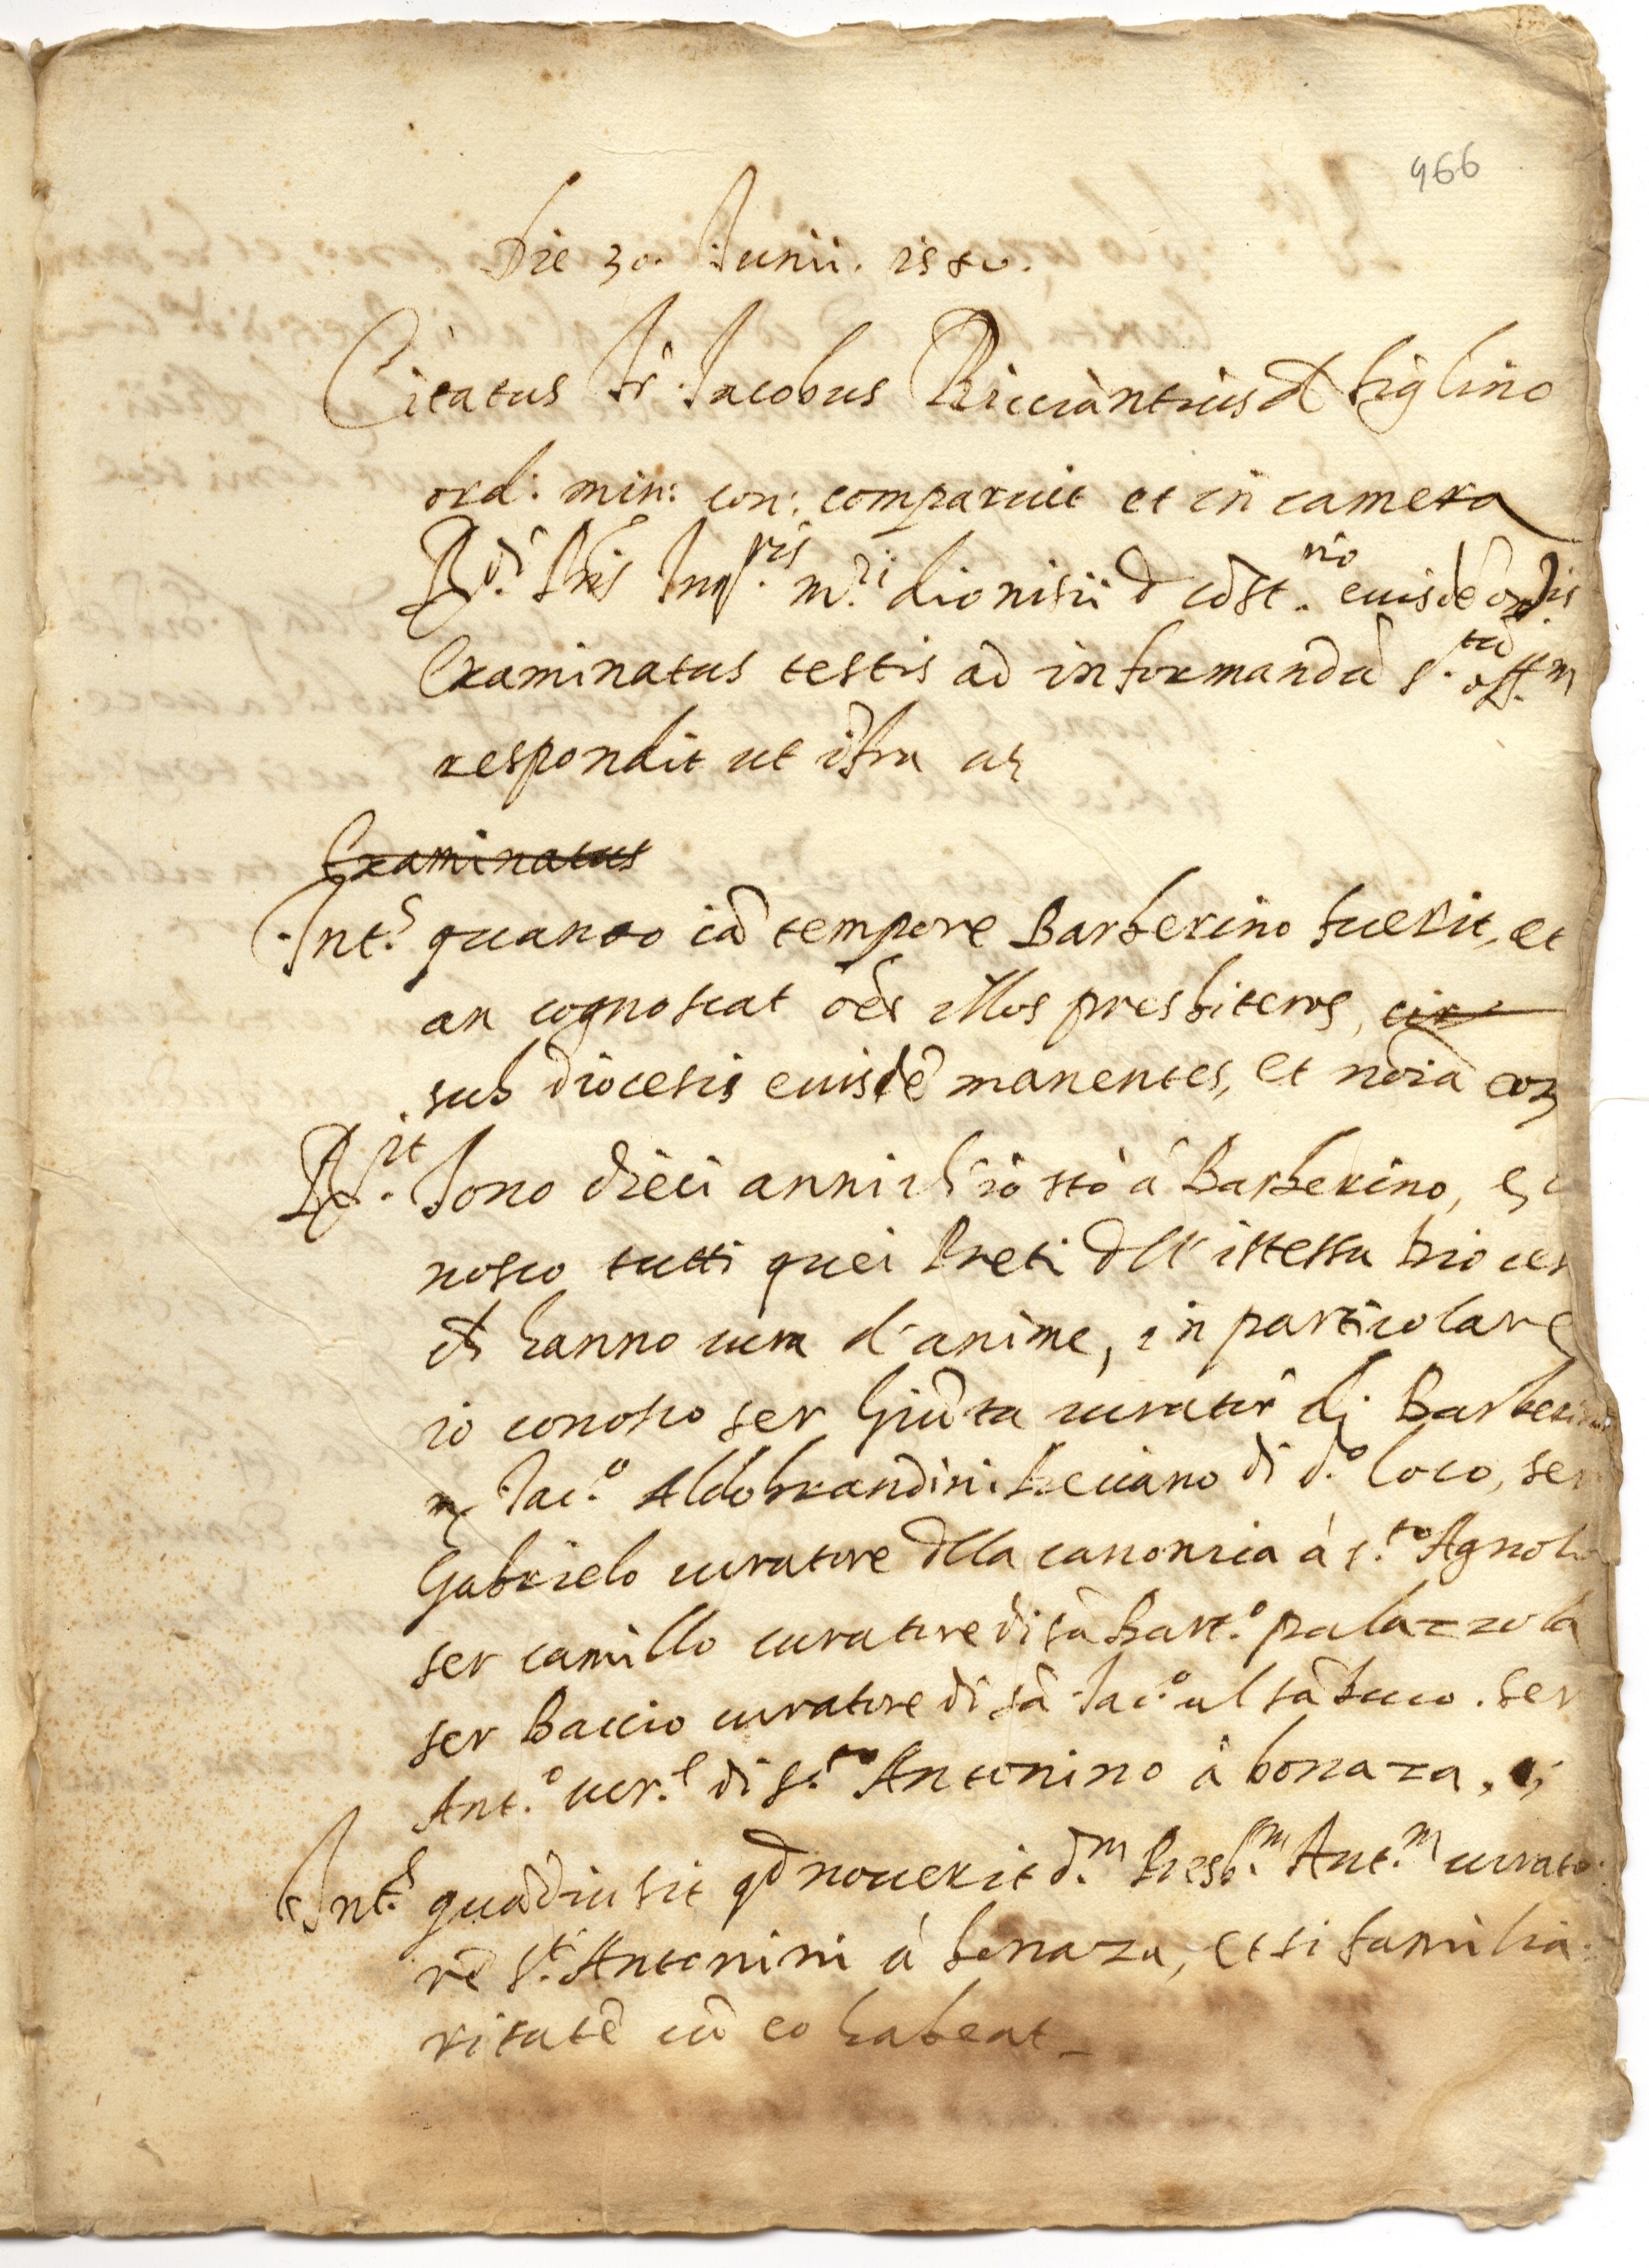 966
Die 30. Junii. 1580.
Citatus fr. Jacobus Ricciantius d Figlino
ord: min: con: comparuit et in camera
R.di Pris Inq.ris m.ri Dionisii d cōst.rio euisdē ord.is
Examinatus testis ad informandū s.tū off.m
respondit ut īfra uz
Examinatus
Int.s quanto iā tempore Barberino fuerit, et
an cognoscat oēs illos presbiteros, cir
sub diocesis euisdē manentes, et noīa eoꝝ
R.it Sono dieci anni ch' io stò à Barberino, e co
nosco tutti quei Preti dll' istessa Dioces
ch hanno cura d'anime, in particolare
io conosco ser Giūta curator di Barberino
m Jac.o Aldobrandini. Pieuano di d.o loco, ser
Gabrielo curatore dlla canonica à s.to Agnolo
ser camillo curatore di sā Bart.o palazzola
ser Baccio curatore di sā Jac.o al sābuco. ser
Ant.o cur.e di s.to Antonino à bonaza,
Int.s quādiu sit qd nouerit d.m Presb.m Ant.m curato
rē s.ti Antonini à bonaza, et si familia
ritatē cū eo habeat